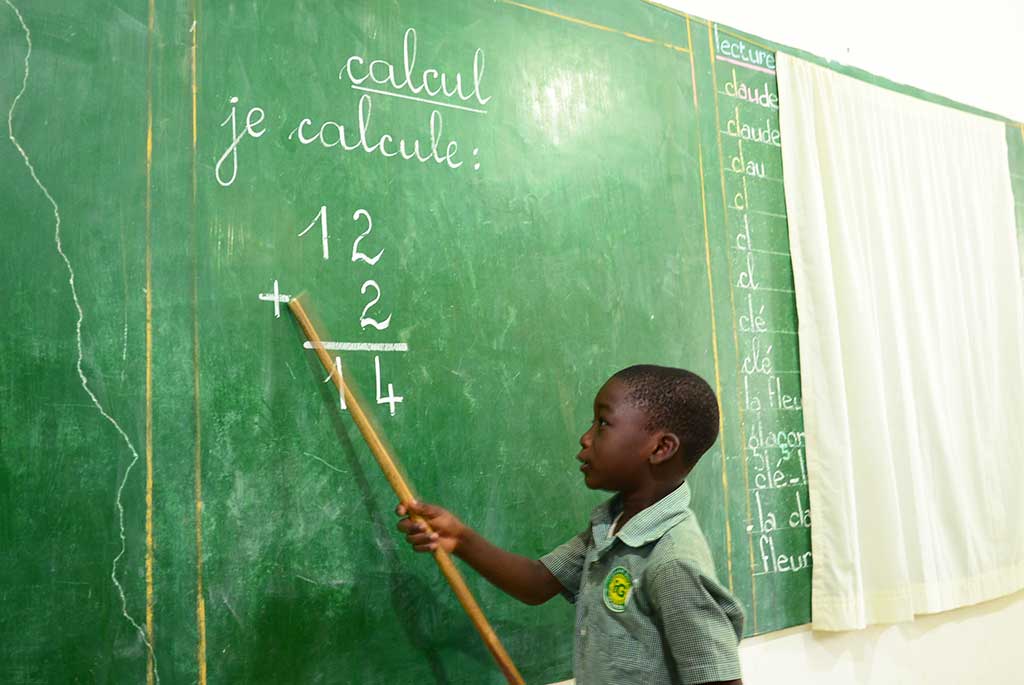 calcul
je calcule:
12
+ 2
14
lecture
claude
claude
clau
cl
cl
cl
clé
clé
la fleu
glaçon
clé-
-la cla
fleur